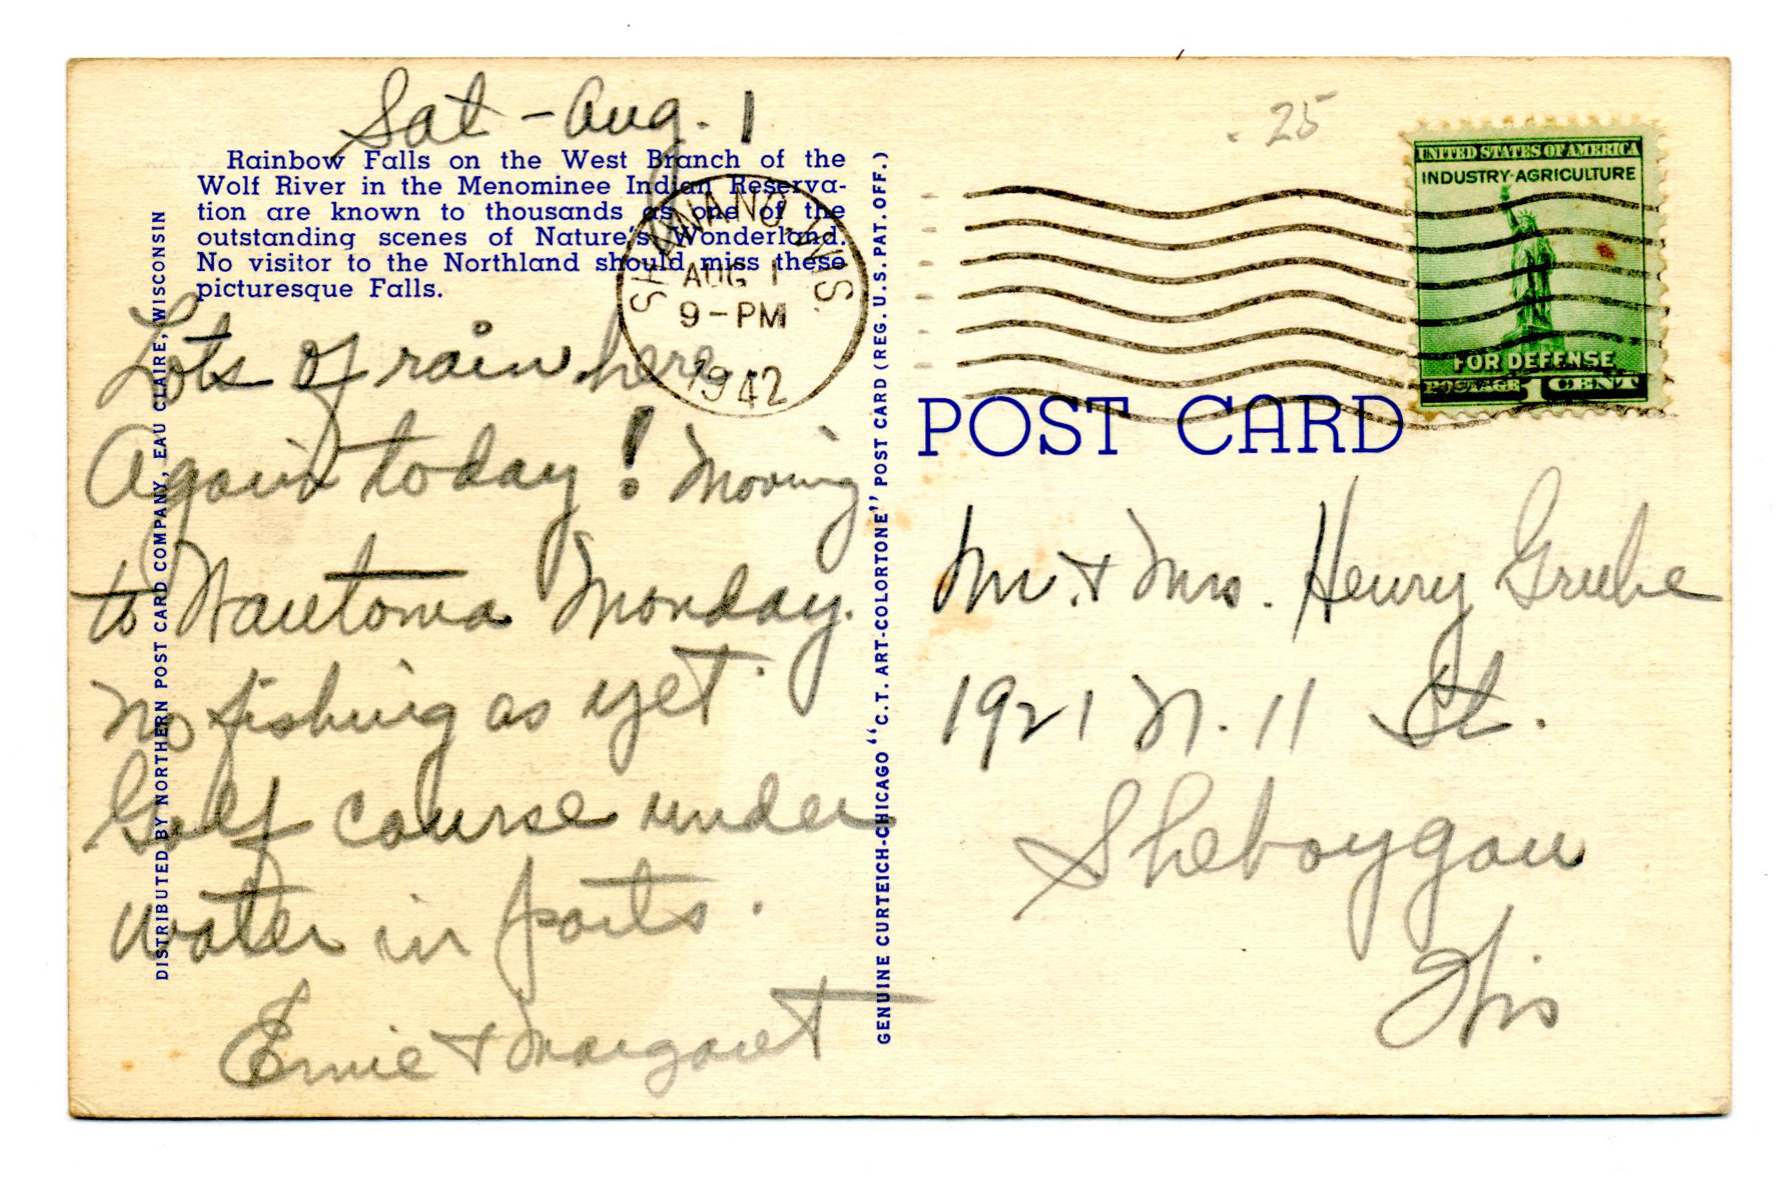 Sat - Aug. 1
Rainbow Falls on the West Branch of the
Wolf River in the Menominee Indian Reserva-
tion are known to thousands as one of the
outstanding scenes of Nature's Wonderland.
No visitor to the Northland should miss these
picturesque Falls.
Lots of rain here
Again today! Moving
to Wautoma Monday.
No fishing as yet.
Golf course under
water in parts.
Ernie + Margaret
DISTRIBUTED BY NORTHERN POST CARD COMPANY, EAU CLAIRE, WISCONSIN
SHAWANO, WIS.
AUG 1
9-PM
1942
GENUINE CURTEICH-CHICAGO "C.T. ART-COLORTONE" POST CARD (REG. U.S. PAT. OFF.)
.25
UNITED STATES OF AMERICA
INDUSTRY-AGRICULTURE
FOR DEFENSE
POSTAGE 1 CENT
POST CARD
Mr. + Mrs. Henry Grube
1921 N. 11 St.
Sheboygan
Wis